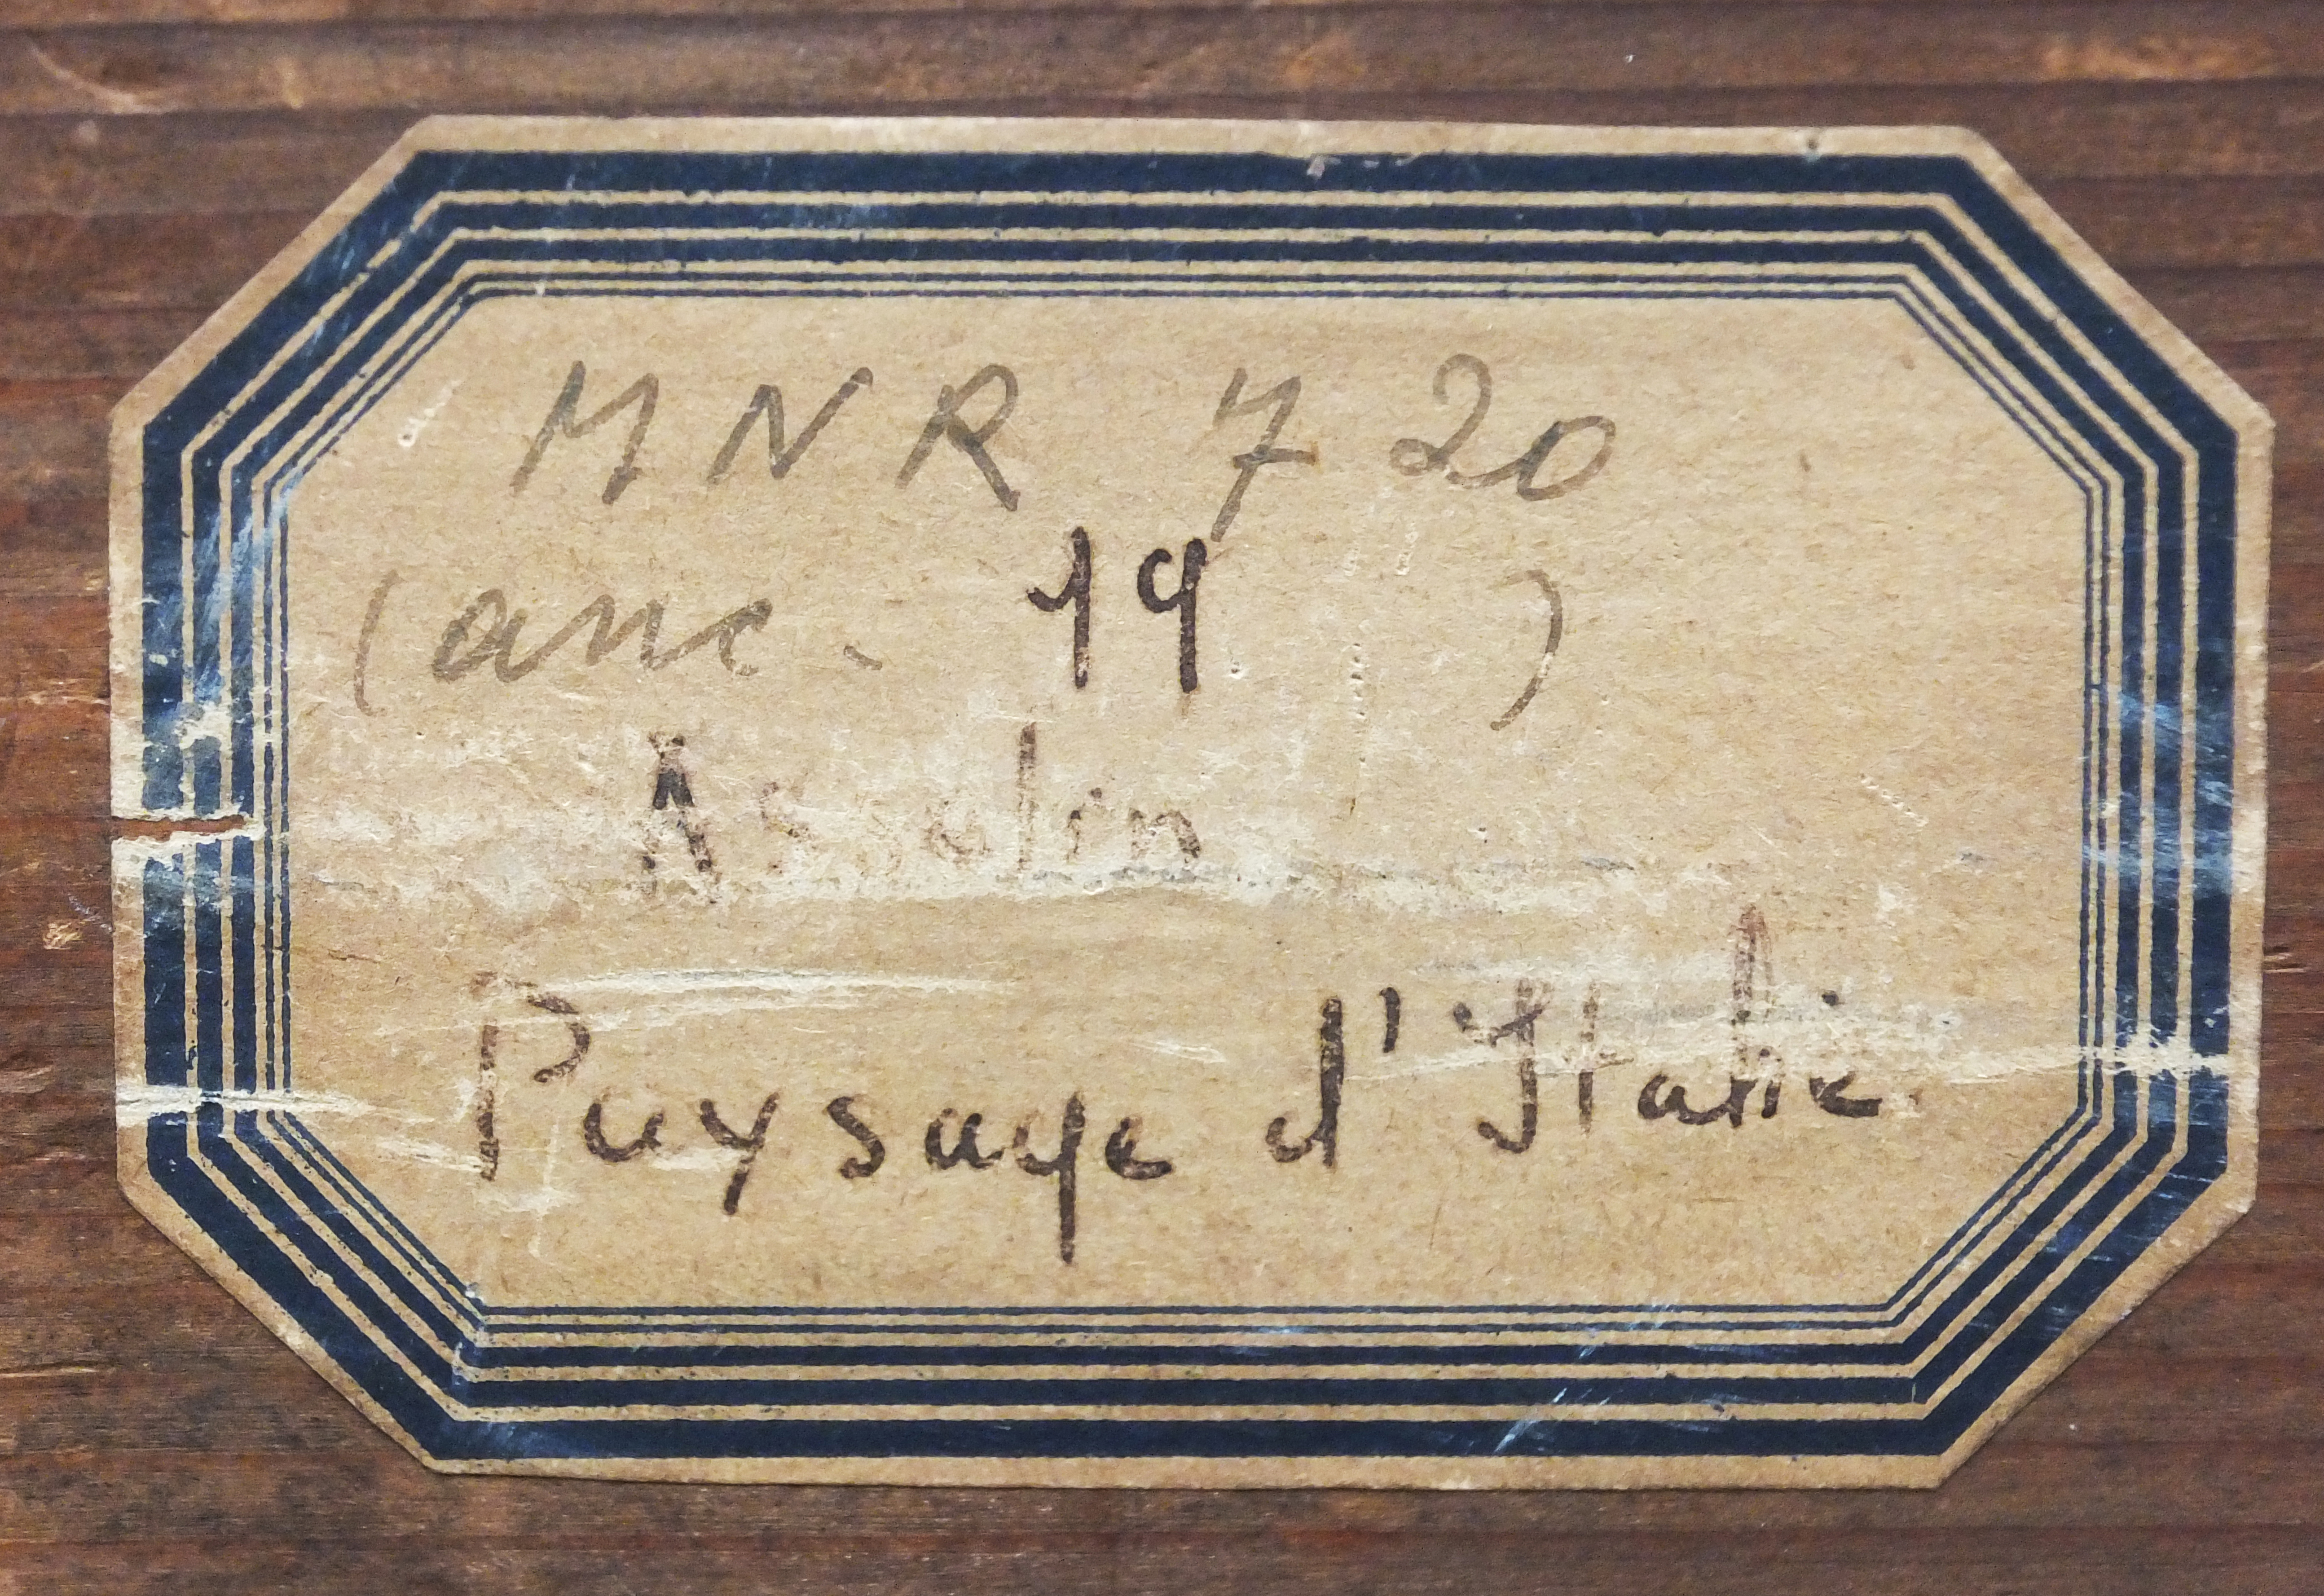 MNR 720
(anc. 19 )
Asselin
Paysage d'Italie